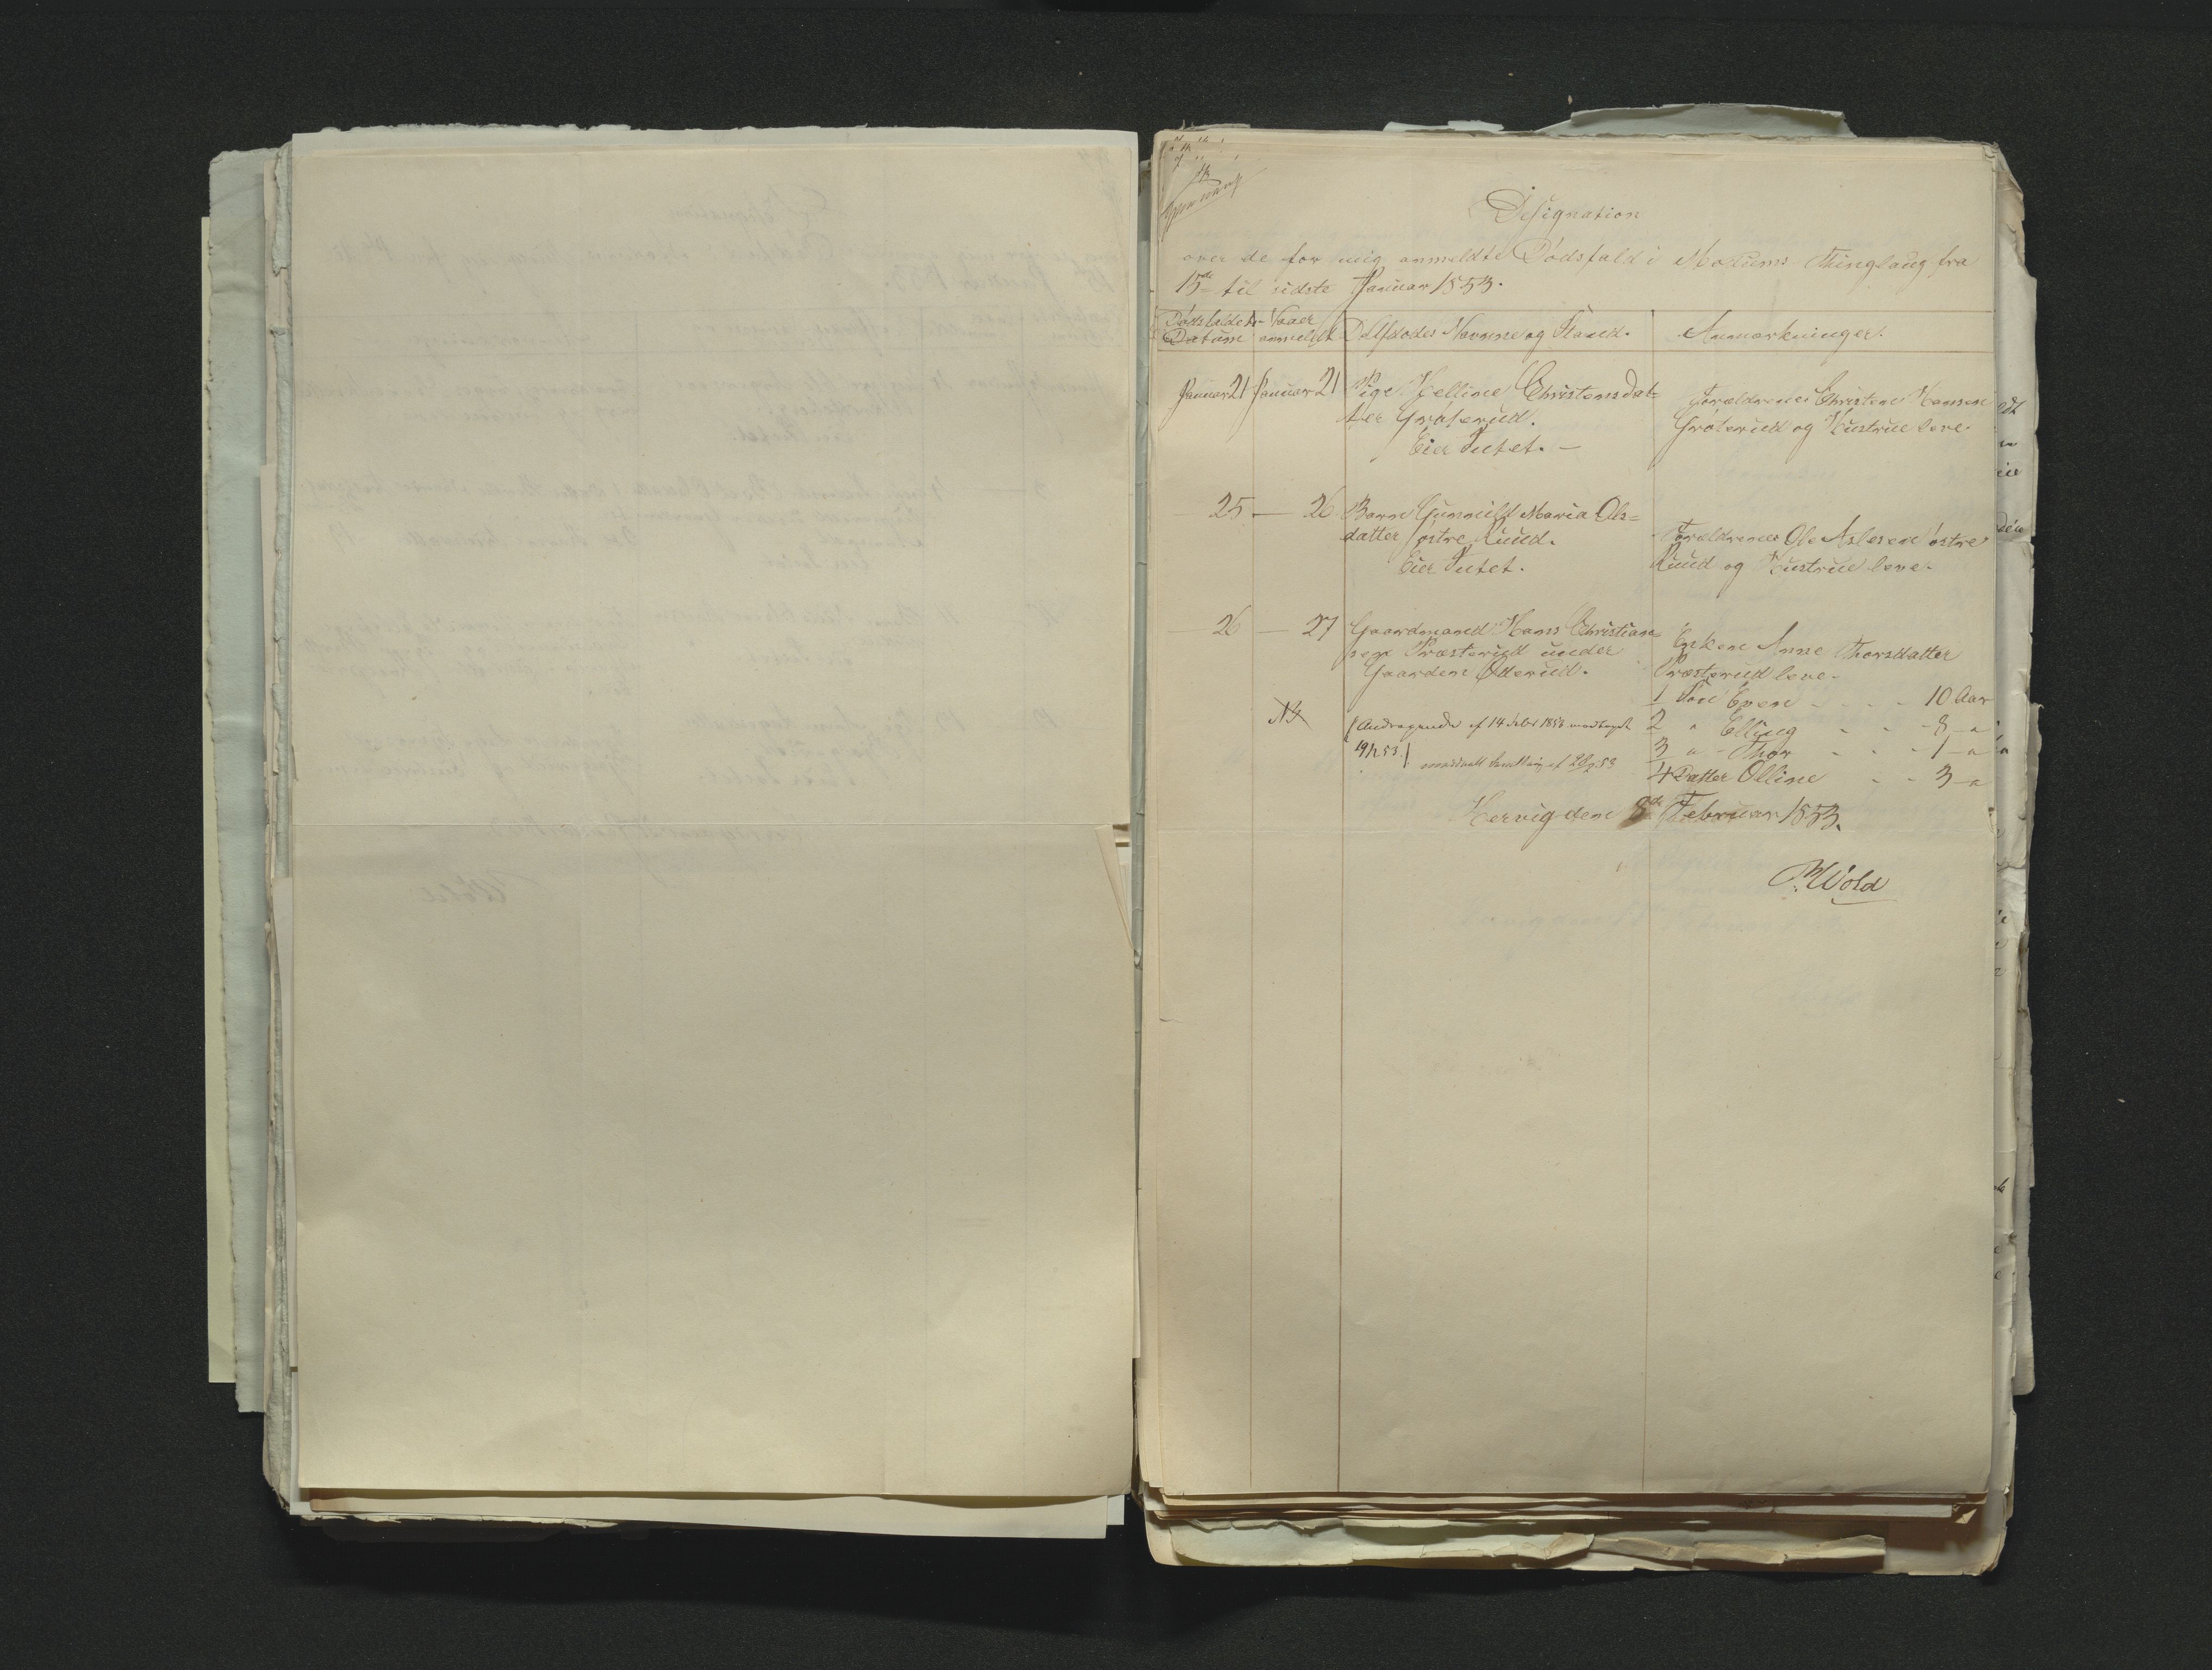 Designation
over de for mig anmeldte Dødsfald i Modums Thinglaug fra
15de til sidste Januar 1853.
Dødsfaldets Datum
Naaer anmeldt
Den Afdødes Navnne og Stand.
Anmærkninger.
Januar 21 Januar 21 Pige Helline Christensdat=
ter Gröterud.
Eier Intet. —
Forældrene Christen Hansen
Gröterud og Hustrue leve.
25 — 26 Barn Gunnild Maria Ols=
datter östre Ruud.
Eier Intet.
Forældrene Ole Aslesen östre
Ruud og Hustrue leve.
26 — 27 Gaardmand Hans Christian=
sen Præsterud under
Gaarden Øderud.
Enken Anne Thorsdatter
Præsterud leve.
1 Søn Even - - - 10 Aar
2 " Elling - - - 8 - "
3 " Thor - - - 1 - "
4 Datter Olline - - 3 - "
Andragende af 14 Febr 1853 modtaget
19/2 53.
af 28/2 53
Hervig den 8de Februar 1853.
Wold